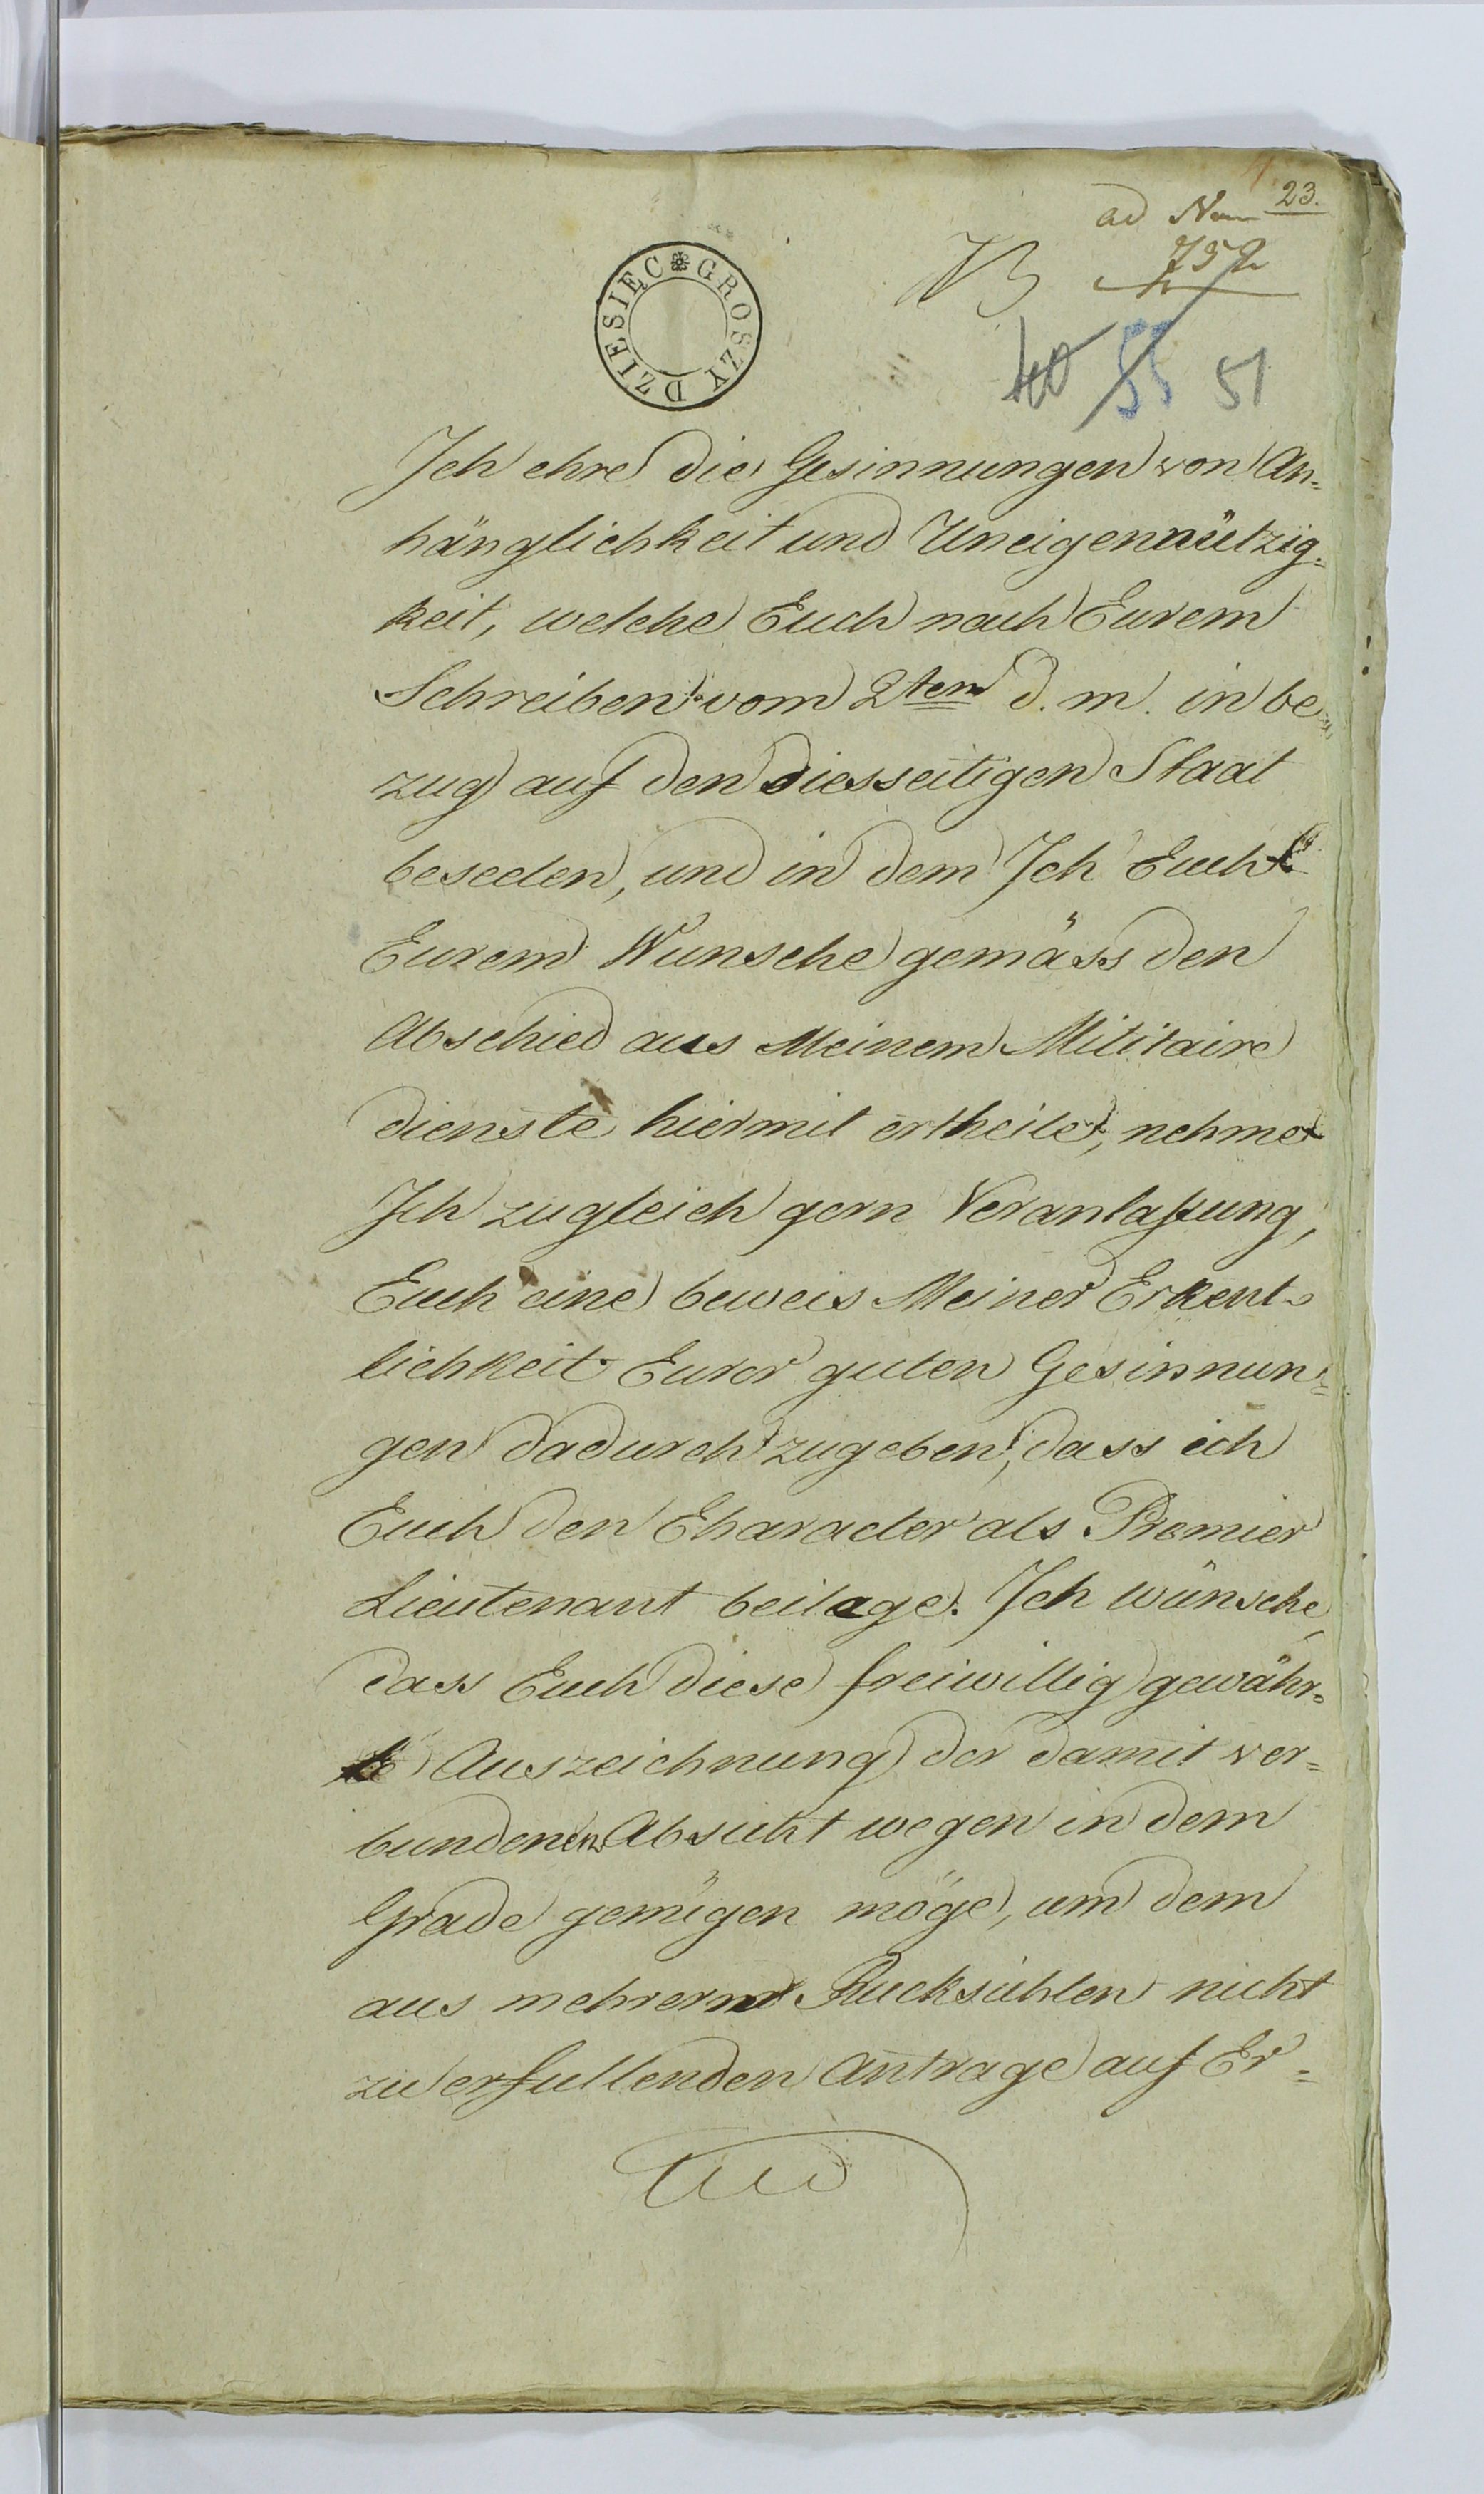 23.
ad Num
752
DZIESIĘĆ GROSZY
40 55 51
Ich ehre die Gesinnungen von An=
hänglichkeit und Uneigennützig=
keit, welche Euch nach Eurem
Schreiben vom 2ten d. m. in be=
zug auf den diesseitigen Staat
beseelen, und in dem Ich Euch
Eurem Wunsche gemäss den
Abschied aus Meinem Militaire
dienste hiermit ertheile, nehme
Ich zugleich gern Veranlaßung,
Euch eine beweis Meiner Erkent-
lichkeit Eurer guten Gesinnun=
gen dadurch zugeben, dass ich
Euch den Character als Premier
Lieutenant beilege. Ich wünsche,
dass Euch diese freiwillig gewähr=
te Auszeichnung der damit ver=
bundenen Absicht wegen in dem
Grade genügen möge, um dem
aus mehrern Rucksichten nicht
zu erfullenden Antrage auf Er=